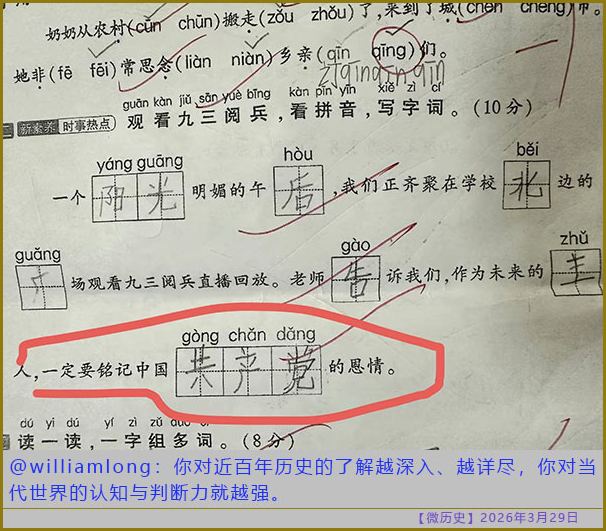 奶奶从农村(cūn chūn)搬走(zǒu zhǒu)了,来到了城(chén chéng)市。
她非(fē fēi)常思念(liàn niàn)乡亲(qīn qīng)们。
新素养 时事热点 观看九三阅兵,看拼音,写字词。(10分)
guān kàn jiǔ sān yuè bīng kàn pīn yīn xiě zì cí
yáng guāng hòu běi
一个阳光明媚的午后,我们正齐聚在学校北边的
guǎng gào zhǔ
广场观看九三阅兵直播回放。老师告诉我们,作为未来的主
gòng chǎn dǎng
人,一定要铭记中国共产党的恩情。
dú yi dú yí zì zǔ duō cí
读一读,一字组多词。(8分)
@williamlong:你对近百年历史的了解越深入、越详尽,你对当
代世界的认知与判断力就越强。
【微历史】2026年3月29日